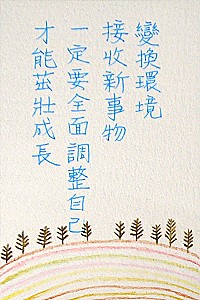 變換環境
接收新事物
一定要全面調整自己
才能茁壯成長